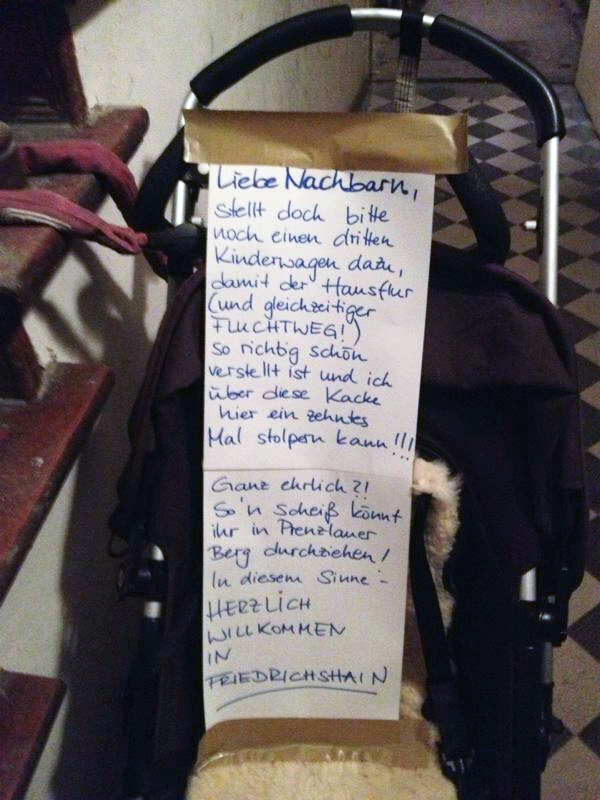 Liebe Nachbarn,
stellt doch bitte
noch einen dritten
Kinderwagen dazu,
damit der Hausflur
(und gleichzeitiger
FLUCHTWEG!)
so richtig schön
verstellt ist und ich
über diese Kacke
hier ein zehntes
Mal stolpern kann!!!
Ganz ehrlich?!
So'n Scheiß könnt
ihr in Prenzlauer
Berg durchziehen!
In diesem Sinne:-
HERZLICH
WILLKOMMEN
IN
FRIEDRICHSHAIN